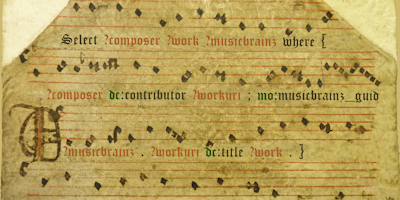 Select ?composer ?work ?musicbrainz where {
?composer dc:contributor ?workuri ; mo:musicbrainz_guid
?musicbrainz . ?workuri dc:title ?work . }